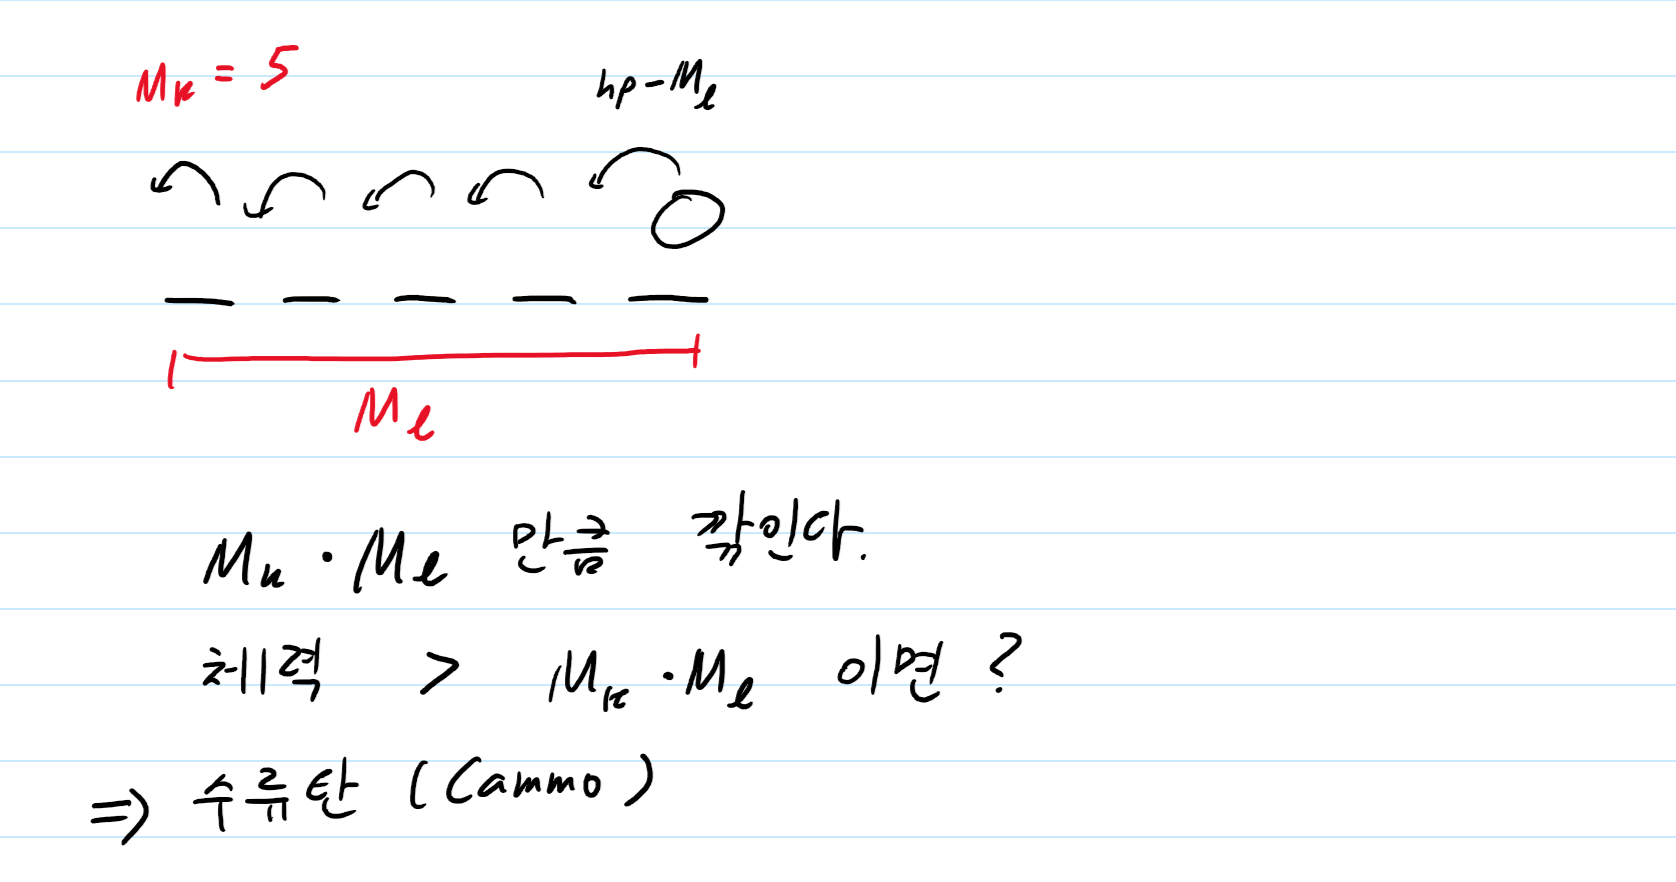 M_k = 5
hp - M_l
M_l
M_k · M_l 만큼 깎인다.
체력 > M_k · M_l 이면 ?
⇒ 수류탄 (Cammo)